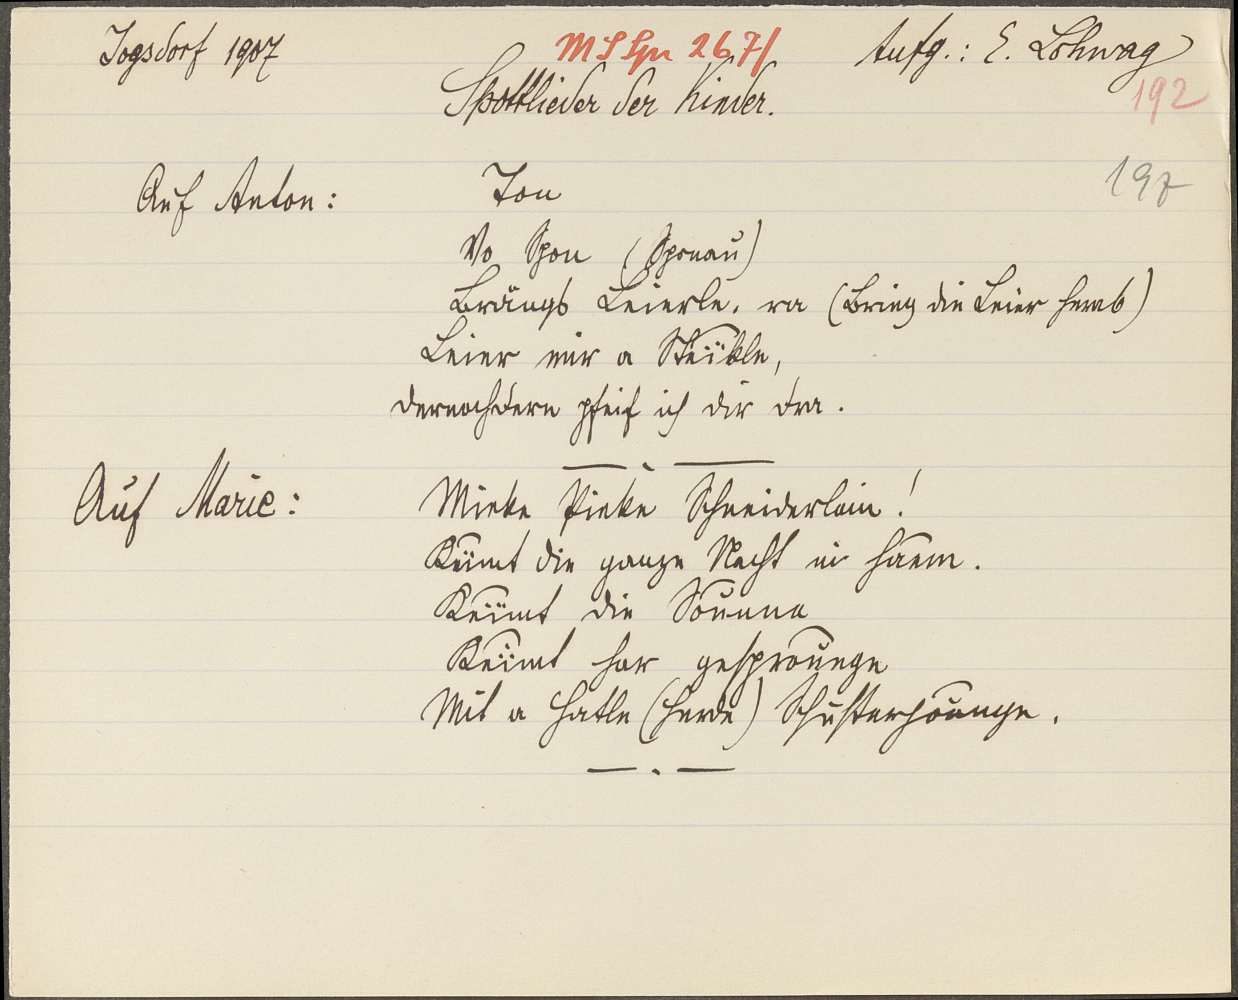 Jogsdorf 1907 MS Spr 267/ Aufg.: E. Lohwag
Spottlieder der Kinder. 192
197
Auf Anton: Ton
Vo Spon (Sponau)
Brängs Leierle, ra (Bring die Leier herab)
Leier mir a Steïkle,
dernochdern pfeif ich dir dra.
Auf Marie: Mieke Pieke Schneiderlain!
Keimt die ganze Nacht ni haem.
Keïmt die Sounne
Keïmt har gesprounge
Mit a Hatle (Herde) Schusterjounge.